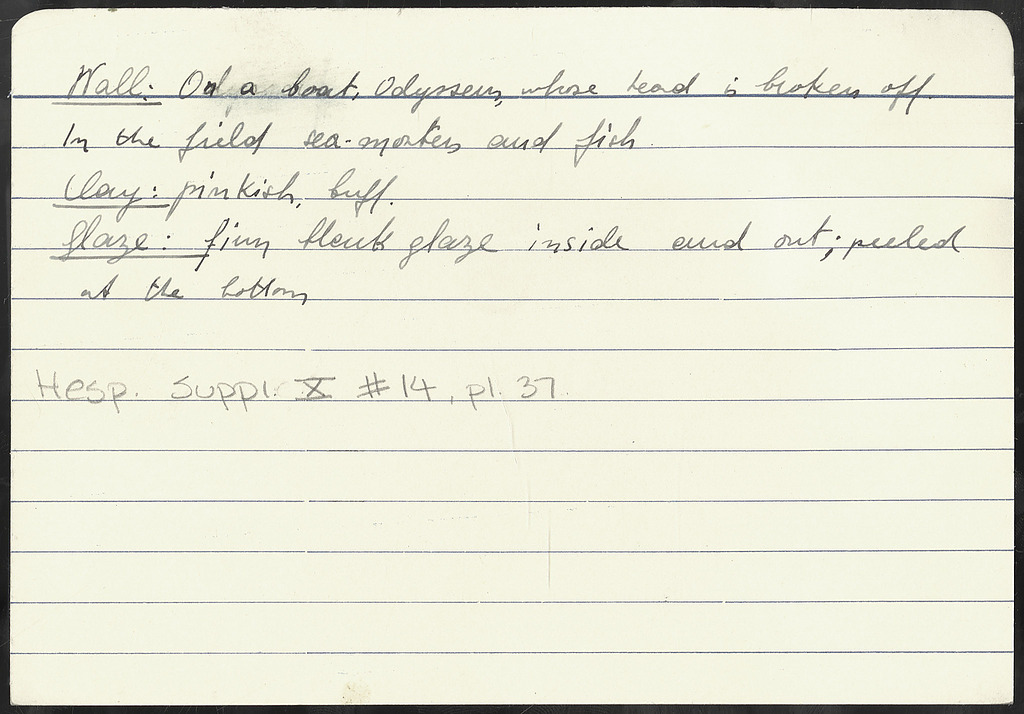 Wall: On a boat, Odysseus, whose head is broken off.
In the field sea-monsters and fish.
Clay: pinkish, buff.
Glaze: firm black glaze inside and out; peeled
at the bottom
Hesp. Suppl. X #14, pl. 37.